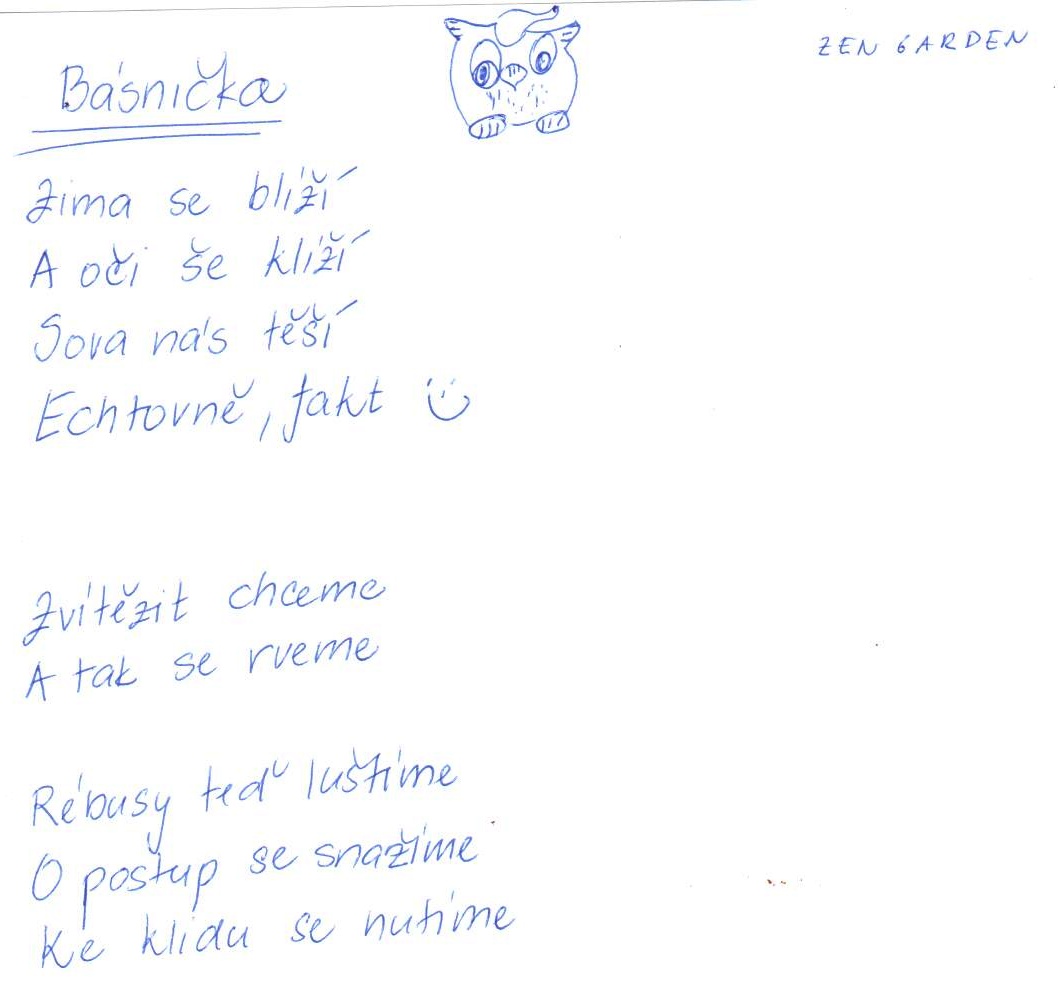 ZEN GARDEN
Básnička
Zima se blíží
A oči še klíží
Sova nás těší
Echtovně, fakt
Zvítězit chceme
A tak se rveme
Rébusy teď luštíme
O postup se snažíme
Ke klidu se nutíme